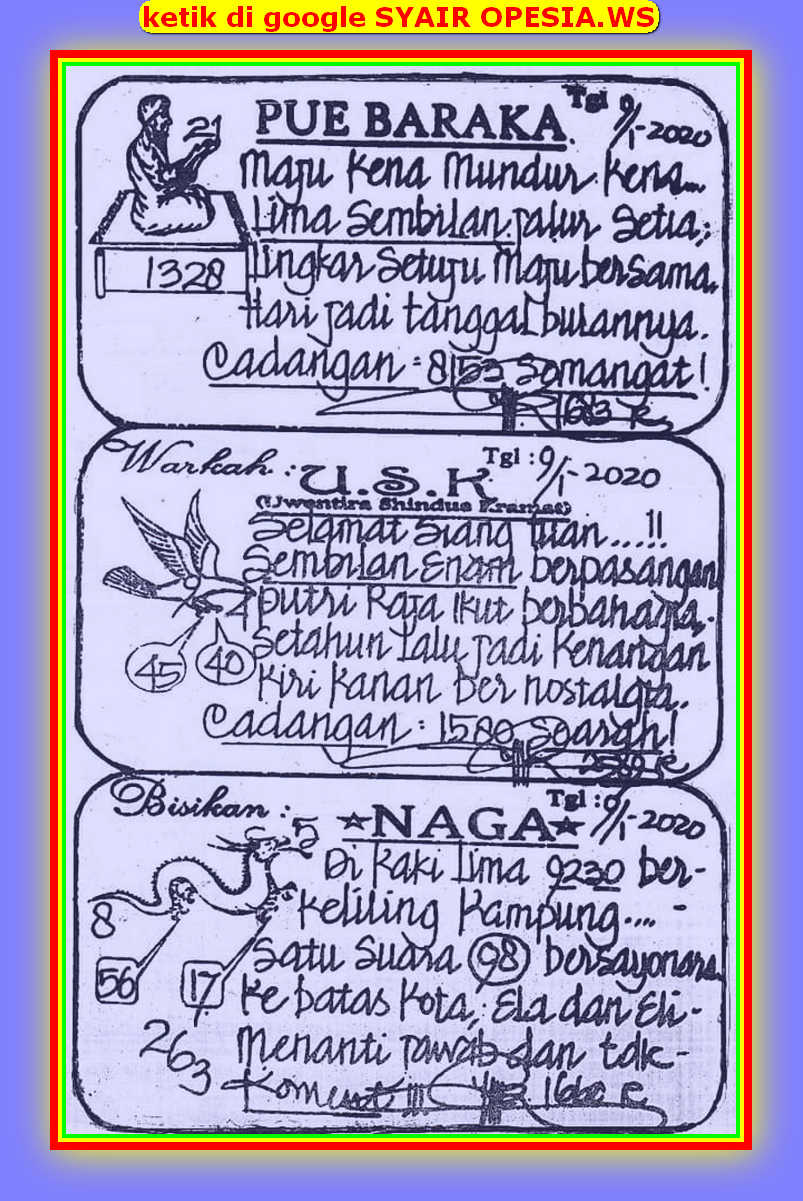 ketik di google SYAIR OPESIA.WS
PUE BARAKA Tgl 9/1-2020
21
Maju kena Mundur kena...
Lima Sembilan jalur Setia,;
1328
Lingkar Setuju Maju bersama.
Hari jadi tanggal bulannya.
Cadangan : 8153 Semangat!
Warkah : U.S.K Tgl : 9/1-2020
(Uwentira Shindue Kramat)
Selamat Siang Tuan...!!
Sembilan Enam berpasangan
putri Raja ikut berbahagia,.
Setahun Lalu jadi Kenangan
45 40
Kiri Kanan ber nostalgia..
Cadangan : 1580
Bisikan : NAGA Tgl : 9/1-2020
5
Di Kaki Lima 9230 ber-
8
Keliling Kampung.... -
Satu Suara 98 bersayonara.
56 17
Ke batas Kota,; Ela dan Eli-
263
Menanti jawab dan tdk-
Koment !!!